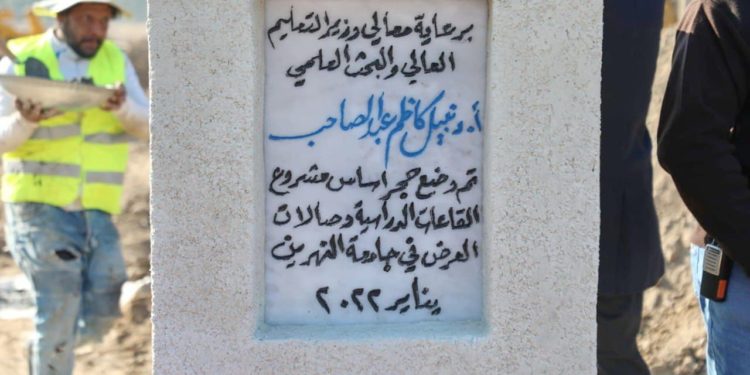 برعاية معالي وزير التعليم
العالي والبحث العلمي
أ.د نبيل كاظم عبد الصاحب
تم وضع حجر اساس مشروع
القاعات الدراسية وصالات
العرض في جامعة النهرين
يناير ٢٠٢٢